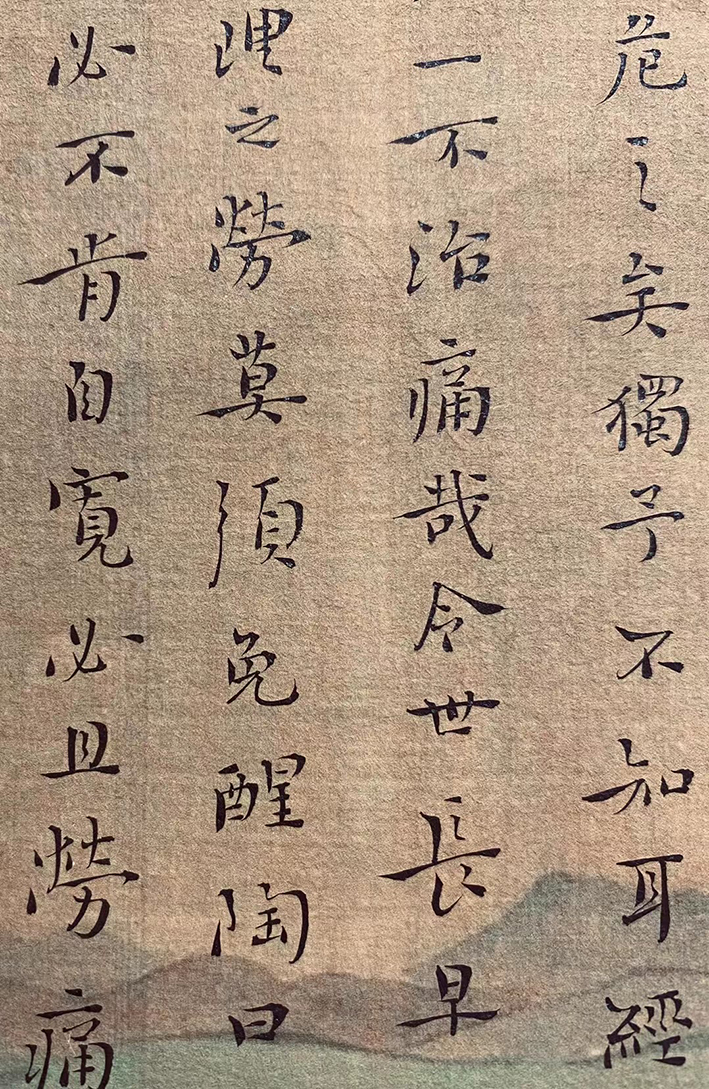 危之矣獨予不知耳經
一不治痛哉令世長早
理之勞莫須免醒陶曰
必不肯自寬必且勞痛